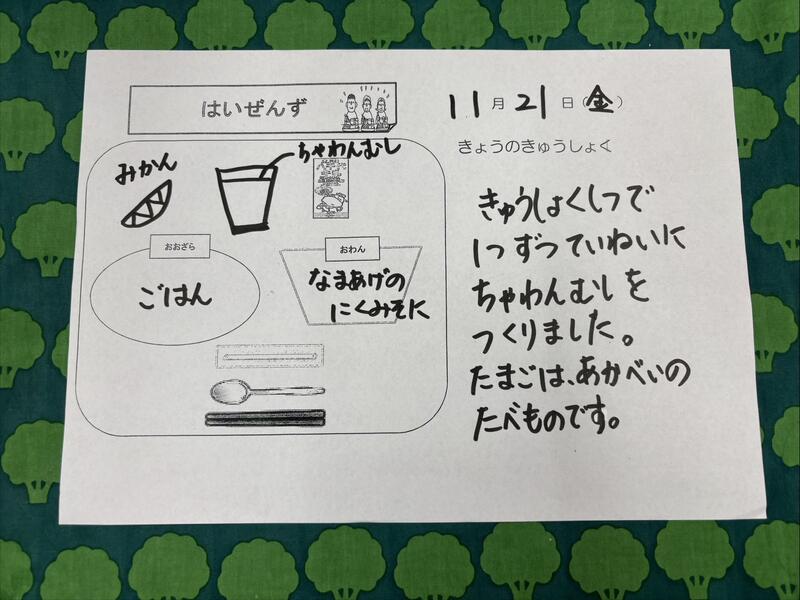 はいぜんず
みかん
ちゃわんむし
おおざら
ごはん
おわん
なまあげの
にくみそに
11月21日(金)
きょうのきゅうしょく
きゅうしょくしつで
1つずつていねいに
ちゃわんむしを
つくりました。
たまごは、あかべいの
たべものです。